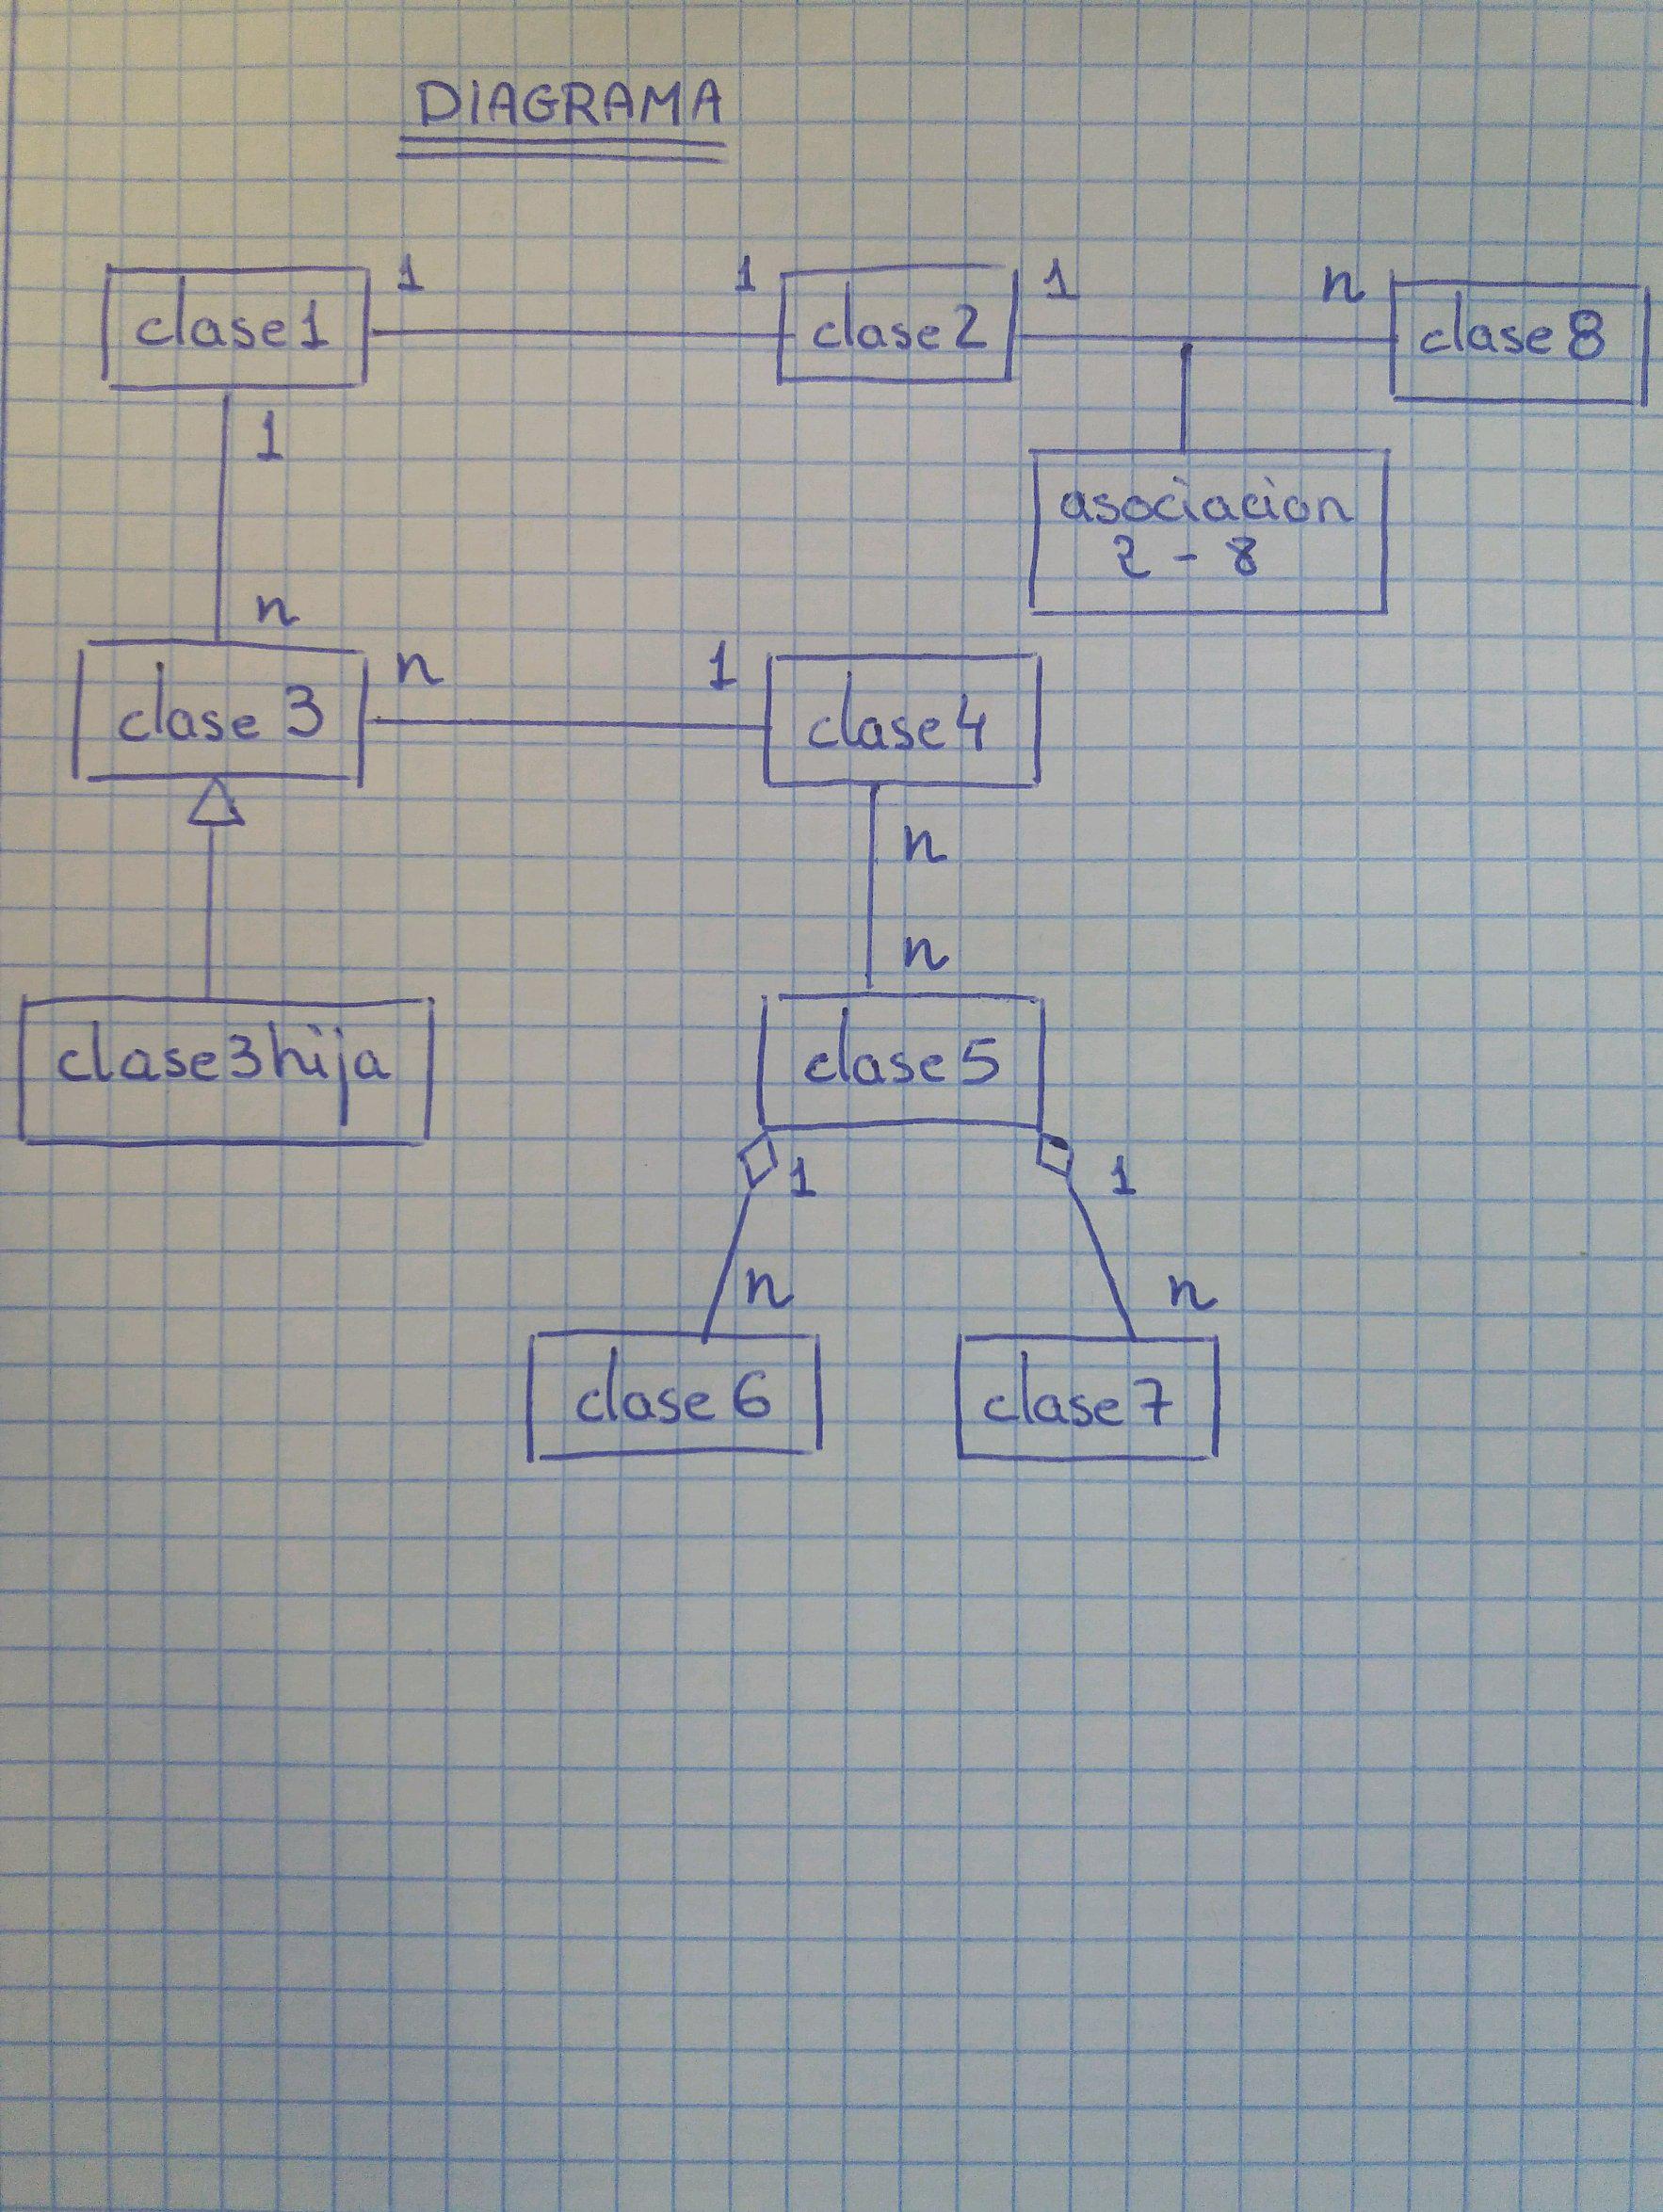 DIAGRAMA
1 1 1 n
clase1 clase2 clase8
1
asociacion
2 - 8
n
n 1
clase 3 clase4
n
n
clase3hija clase5
1 1
n n
clase 6 clase7